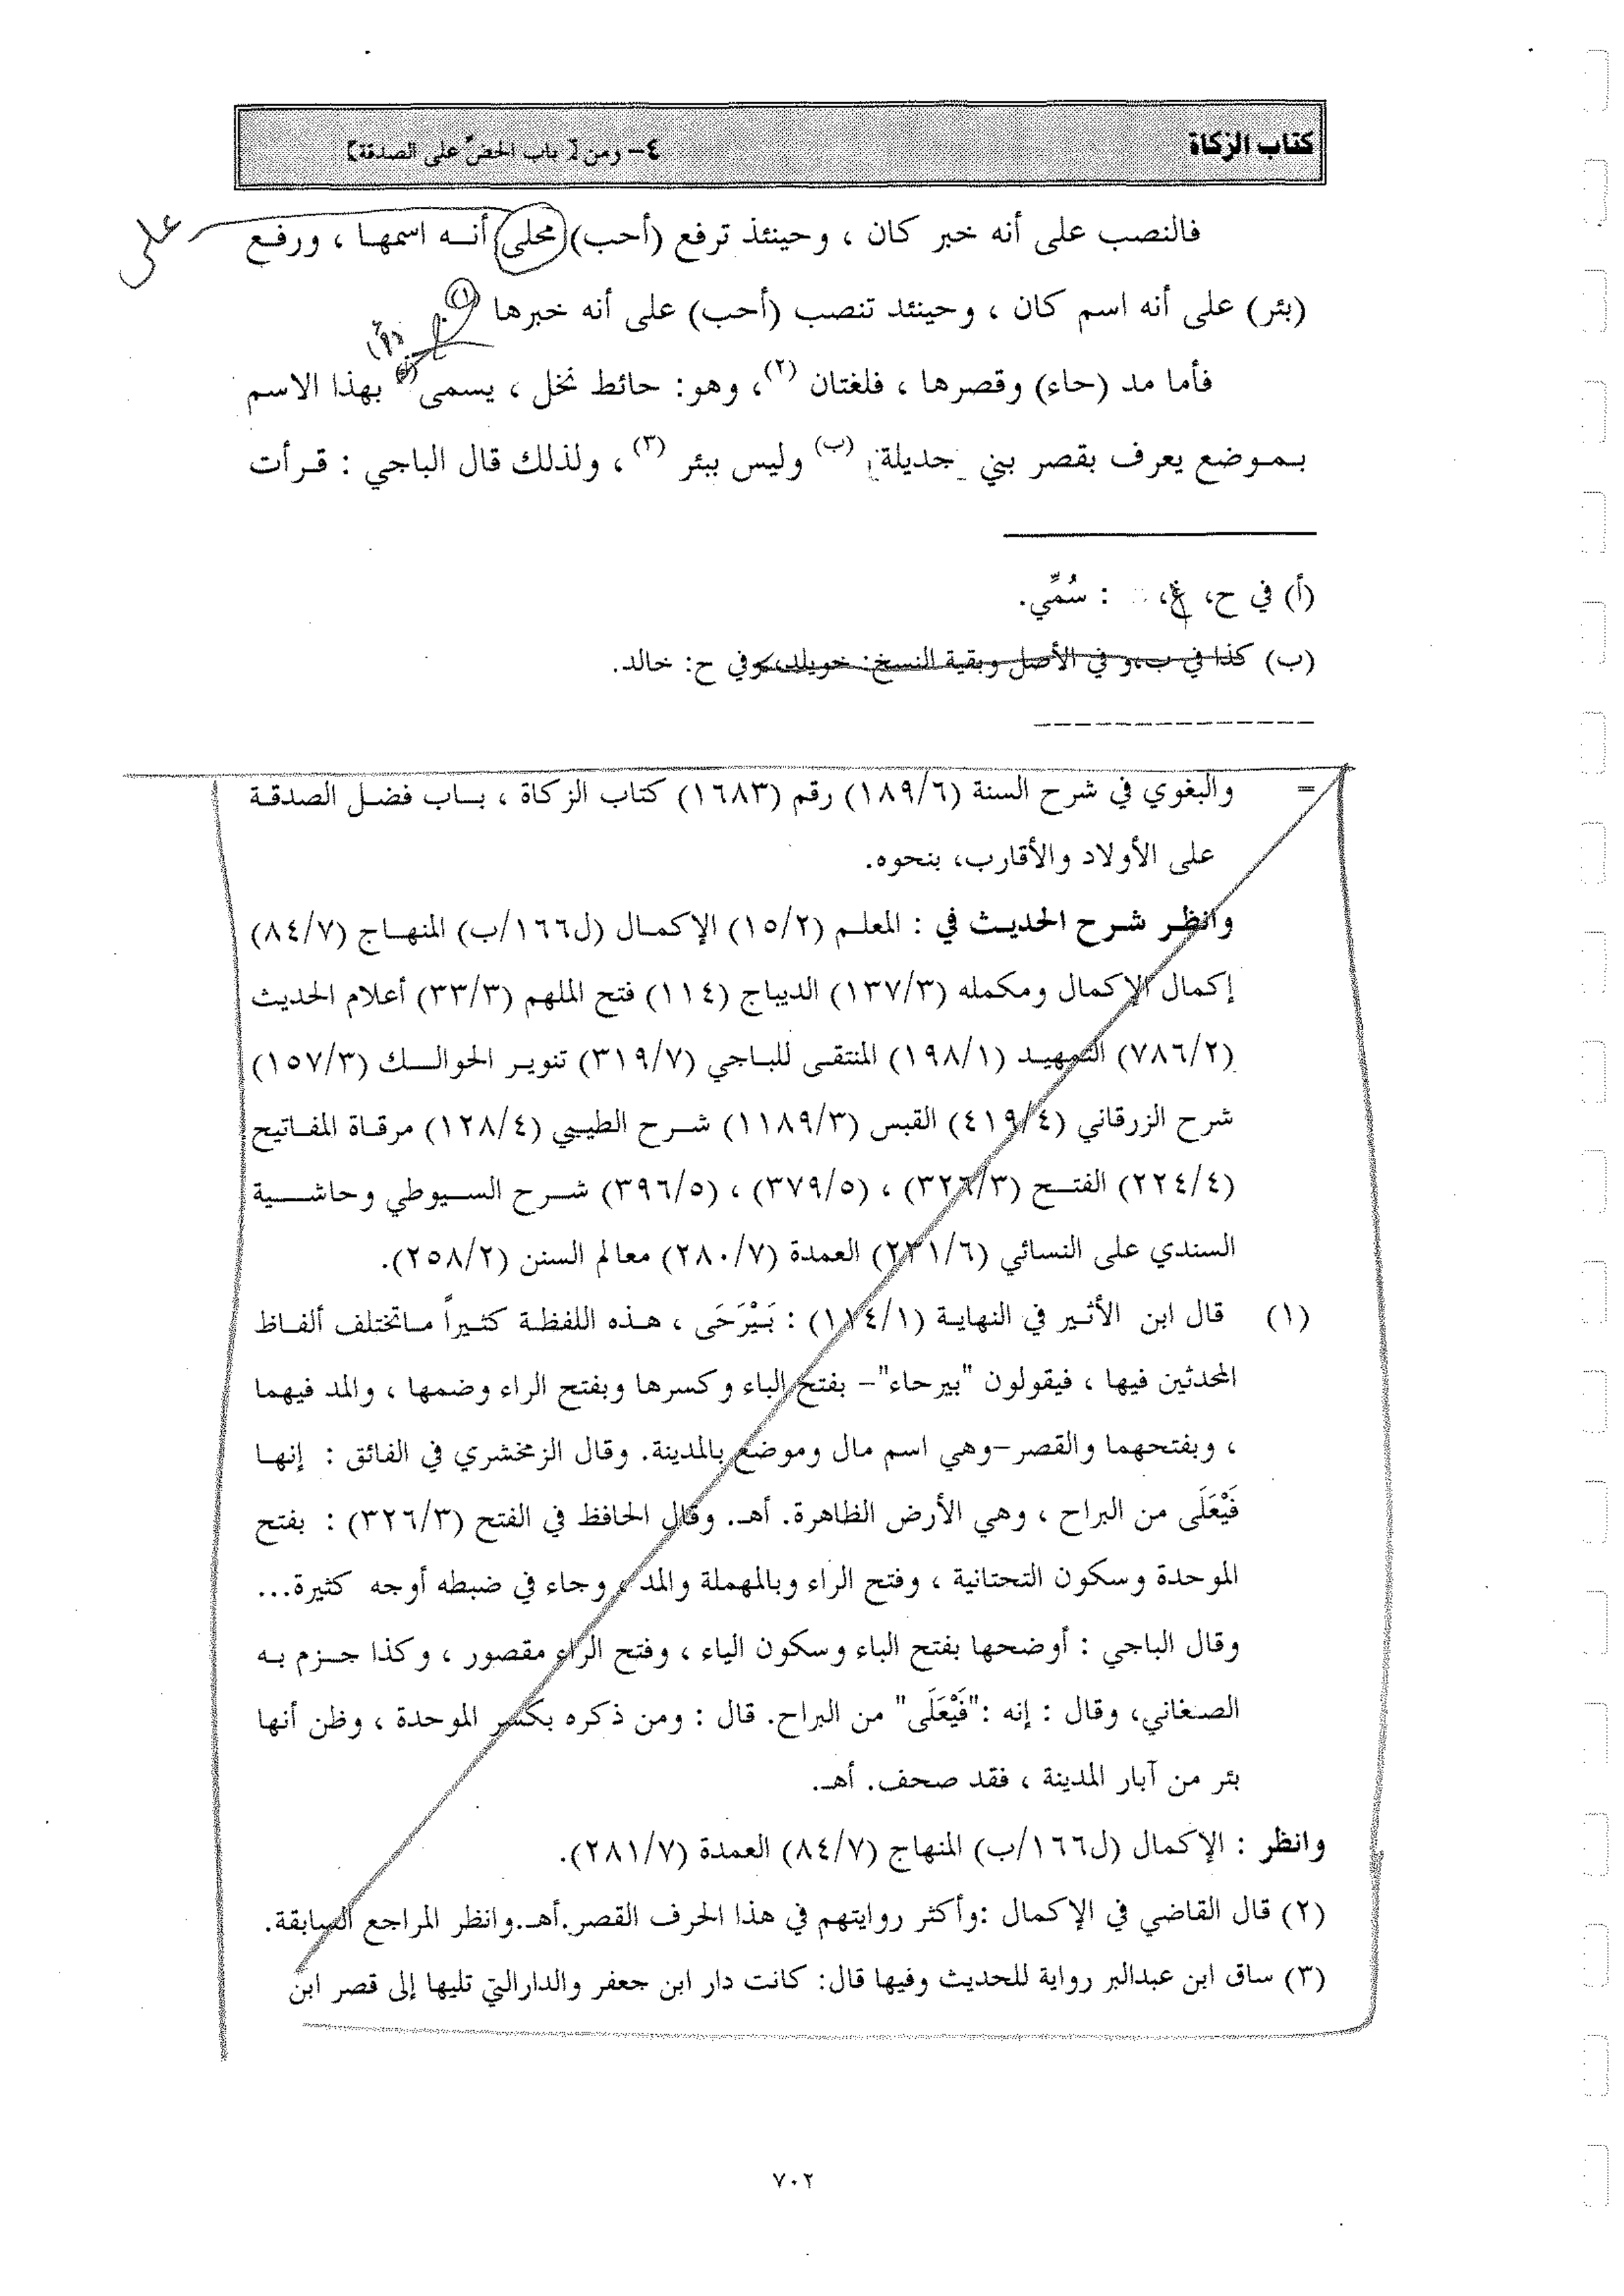 كتاب الزكاة
٤- ومن [ باب الحضّ على الصدقة]
فالنصب على أنه خبر كان ، وحينئذ ترفع (أحب) محلى أنه اسمها ، ورفع
على
(بئر) على أنه اسم كان ، وحينئذ تنصب (أحب) على أنه خبرها (١)
فأما مد (حاء) وقصرها ، فلغتان (٢)، وهو: حائط نخل ، يسمى (أ) بهذا الاسم
بموضع يعرف بقصر بني جديلة (ب) وليس ببئر (٣) ، ولذلك قال الباجي : قرأت
(أ) في ح، غ، : سُمِّي.
(ب) كذا في ب، و في الأصل وبقية النسخ: خويلد، وفي ح: خالد.
= والبغوي في شرح السنة (١٨٩/٦) رقم (١٦٨٣) كتاب الزكاة ، باب فضل الصدقة
على الأولاد والأقارب، بنحوه.
وانظر شرح الحديث في : المعلم (١٥/٢) الإكمال (ل١٦٦/ب) المنهاج (٨٤/٧)
إكمال الإكمال ومكمله (١٣٧/٣) الديباج (١١٤) فتح الملهم (٣٣/٣) أعلام الحديث
(٧٨٦/٢) التمهيد (١٩٨/١) المنتقى للباجي (٣١٩/٧) تنوير الحوالك (١٥٧/٣)
شرح الزرقاني (٤١٩/٤) القبس (١١٨٩/٣) شرح الطيبي (١٢٨/٤) مرقاة المفاتيح
(٢٢٤/٤) الفتح (٣٢٦/٣) ، (٣٧٩/٥) ، (٣٩٦/٥) شرح السيوطي وحاشية
السندي على النسائي (٢٣١/٦) العمدة (٢٨٠/٧) معالم السنن (٢٥٨/٢).
(١) قال ابن الأثير في النهاية (١١٤/١) : بَيْرَحَى ، هذه اللفظة كثيراً ماتختلف ألفاظ
المحدثين فيها ، فيقولون "بيرحاء"- بفتح الباء وكسرها وبفتح الراء وضمها ، والمد فيهما
، وبفتحهما والقصر-وهي اسم مال وموضع بالمدينة. وقال الزمخشري في الفائق : إنها
فَيْعَلَى من البراح ، وهي الأرض الظاهرة. أهـ. وقال الحافظ في الفتح (٣٢٦/٣) : بفتح
الموحدة وسكون التحتانية ، وفتح الراء وبالمهملة والمد ، وجاء في ضبطه أوجه كثيرة...
وقال الباجي : أوضحها بفتح الباء وسكون الياء ، وفتح الراء مقصور ، وكذا جزم به
الصغاني، وقال : إنه :"فَيْعَلَى" من البراح. قال : ومن ذكره بكسر الموحدة ، وظن أنها
بئر من آبار المدينة ، فقد صحف. أهـ.
وانظر : الإكمال (ل١٦٦/ب) المنهاج (٨٤/٧) العمدة (٢٨١/٧).
(٢) قال القاضي في الإكمال :وأكثر روايتهم في هذا الحرف القصر.أهـ.وانظر المراجع السابقة.
(٣) ساق ابن عبدالبر رواية للحديث وفيها قال: كانت دار ابن جعفر والدارالتي تليها إلى قصر ابن
٧٠٢